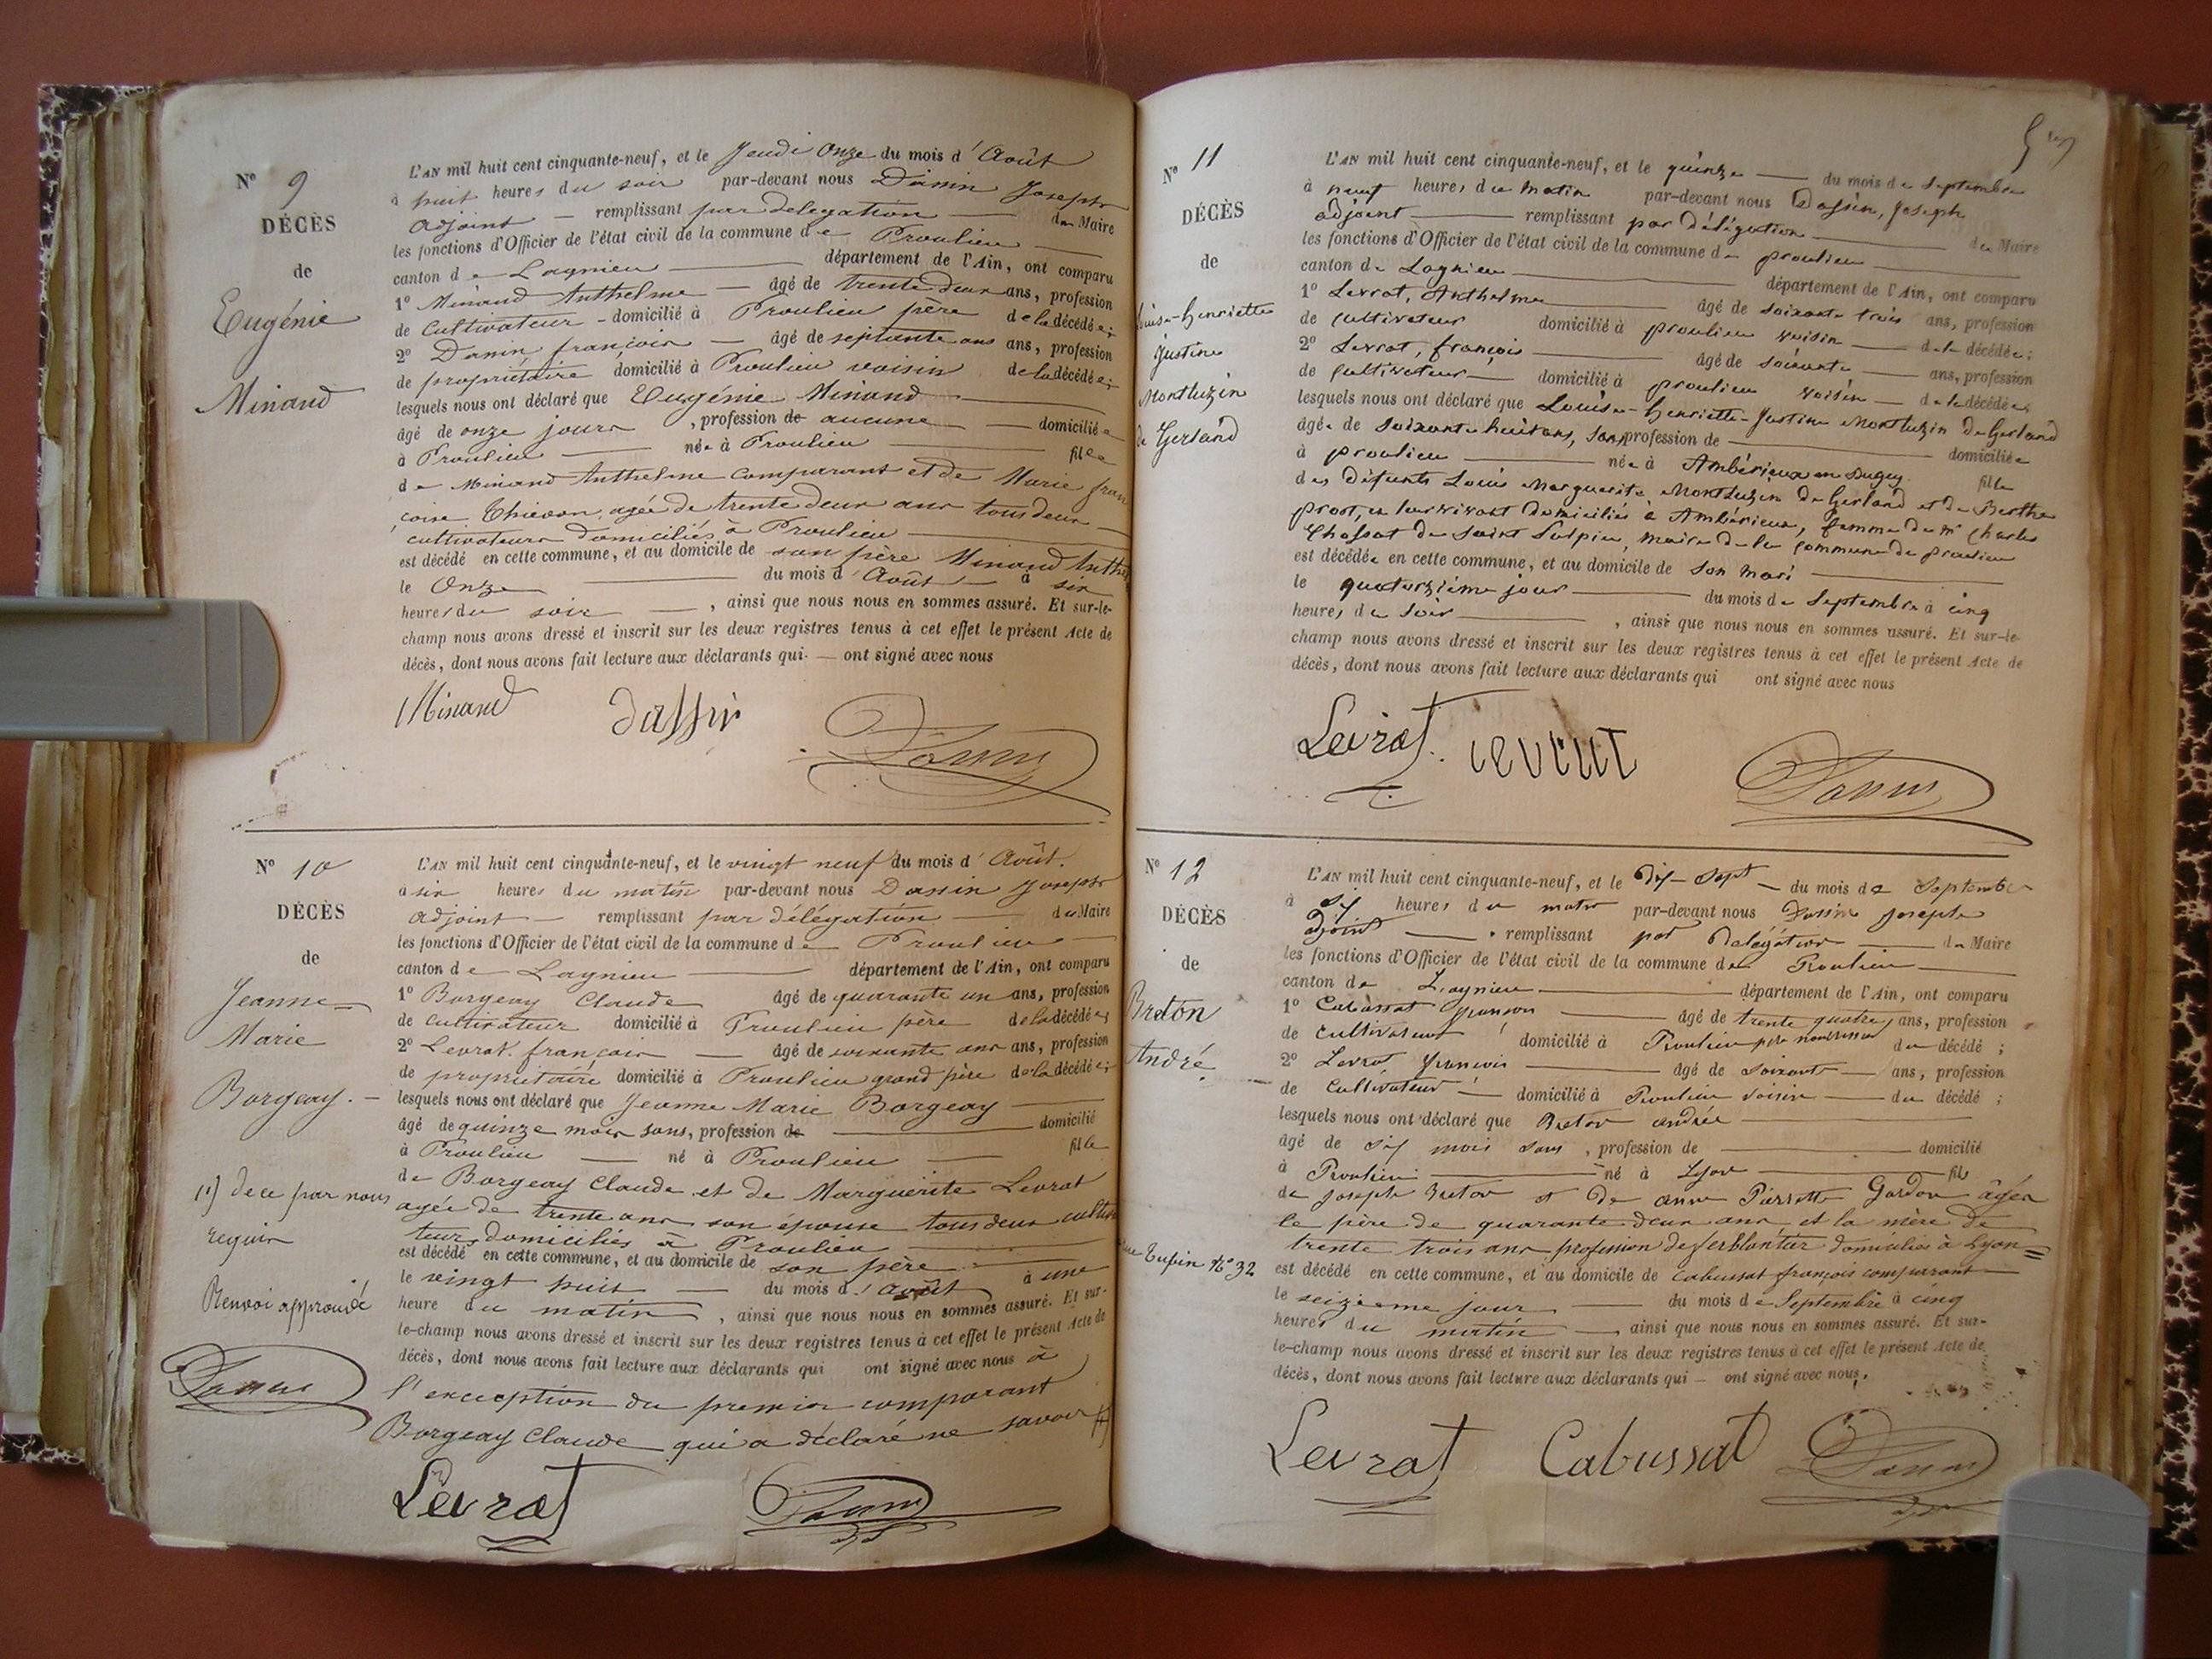 N° 9
DÉCÈS
de
Eugénie
Minand
L'AN mil huit cent cinquante-neuf, et le Jeudi onze du mois d'Août
à huit heures du soir par-devant nous Dassin Joseph
adjoint — remplissant par délégation — du Maire
les fonctions d'Officier de l'état civil de la commune de Proulieu
canton de Lagnieu — département de l'Ain, ont comparu
1° Minand Anthelme — âgé de trente deux ans, profession
de cultivateur - domicilié à Proulieu père de la décédée;
2° Dassin françois — âgé de septante ans ans, profession
de propriétaire domicilié à Proulieu voisin de la décédée;
lesquels nous ont déclaré que Eugénie Minand
âgé de onze jours, profession de aucune — domiciliée
à Proulieu — née à Proulieu — fille
de Minand Anthelme comparant et de Marie fran
çoise Thievon, agée de trente deux ans tous deux
cultivateurs domiciliés à Proulieu
est décédé en cette commune, et au domicile de son père Minand Anthe
le Onze — du mois d'Août — à six
heures du soir —, ainsi que nous nous en sommes assuré. Et sur-le-
champ nous avons dressé et inscrit sur les deux registres tenus à cet effet le présent Acte de
décès, dont nous avons fait lecture aux déclarants qui — ont signé avec nous
Minand dassin Dassin
N° 10
DÉCÈS
de
Jeanne
Marie
Borgeay.
L'AN mil huit cent cinquante-neuf, et le vingt neuf du mois d'Août.
à six heures du matin par-devant nous Dassin Joseph
adjoint — remplissant par délégation — du Maire
les fonctions d'Officier de l'état civil de la commune de Proulieu
canton de Lagnieu — département de l'Ain, ont comparu
1° Borgeay Claude âgé de quarante un ans, profession
de cultivateur domicilié à Proulieu père de la décédée;
2° Levrat françois — âgé de soixante ans ans, profession
de propriétaire domicilié à Proulieu grand père de la décédée;
lesquels nous ont déclaré que Jeanne Marie Borgeay
âgé de quinze mois sans, profession de — domicilié
à Proulieu — né à Proulieu — fille
de Borgeay Claude et de Marguerite Levrat
agée de trente ans son épouse tous deux cultiva
teurs domiciliés à Proulieu
est décédé en cette commune, et au domicile de son père
le vingt huit — du mois d'août à une
heure du matin, ainsi que nous nous en sommes assuré. Et sur-
le-champ nous avons dressé et inscrit sur les deux registres tenus à cet effet le présent Acte de
décès, dont nous avons fait lecture aux déclarants qui ont signé avec nous à
l'exception du premier comparant
Borgeay Claude qui a déclaré ne savoir
(1) de ce par nous
requis
Renvoi approuvé
Dassin
Levrat Dassin
N° 11
DÉCÈS
de
Louise-Henriette
Justine
Montluzin
de Gerland
L'AN mil huit cent cinquante-neuf, et le quinze — du mois de septembre
à neuf heures du matin par-devant nous Dassin, Joseph
adjoint — remplissant par délégation — du Maire
les fonctions d'Officier de l'état civil de la commune de proulieu
canton de Lagnieu — département de l'Ain, ont comparu
1° Levrat, Anthelme — âgé de soixante trois ans, profession
de cultivateur domicilié à proulieu voisin — de la décédée;
2° Levrat, françois — âgé de soixante — ans, profession
de cultivateur — domicilié à proulieu voisin — de la décédée;
lesquels nous ont déclaré que Louise-Henriette-Justine Montluzin de Gerland
âgée de soixante huit ans, sans profession de — domiciliée
à proulieu — née à Ambérieux en Bugey fille
des défunts Louis Marguerite Montluzin de Gerland et de Berthe
prost, en leur vivant domiciliés à Ambérieux, femme de mr Charles
Chossat de Saint Sulpice, maire de la commune de proulieu
est décédée en cette commune, et au domicile de son mari
le quatorzième jour — du mois de Septembre à cinq
heures du soir —, ainsi que nous nous en sommes assuré. Et sur-le-
champ nous avons dressé et inscrit sur les deux registres tenus à cet effet le présent Acte de
décès, dont nous avons fait lecture aux déclarants qui ont signé avec nous
Levrat. levrat Dassin
N° 12
DÉCÈS
de
Breton
André
L'AN mil huit cent cinquante-neuf, et le dix-sept — du mois de Septembre
à six heures du matin par-devant nous Dassin Joseph
adjoint — remplissant par délégation — du Maire
les fonctions d'Officier de l'état civil de la commune de Proulieu
canton de Lagnieu — département de l'Ain, ont comparu
1° Cabussat françois — âgé de trente quatre ans, profession
de cultivateur domicilié à Proulieu père nourricier du décédé;
2° Levrat françois — âgé de soixante — ans, profession
de Cultivateur — domicilié à Proulieu voisin — du décédé;
lesquels nous ont déclaré que Breton andrée
âgé de six mois sans, profession de — domicilié
à Proulieu — né à Lyon — fils
de joseph Breton et de anne Pierrette Gardon âgés
le père de quarante deux ans et la mère de
trente trois ans profession de ferblantier domiciliés à Lyon
rue Tupin N° 32
est décédé en cette commune, et au domicile de cabussat françois comparant
le seizième jour — du mois de Septembre à cinq
heures du matin — ainsi que nous nous en sommes assuré. Et sur-
le-champ nous avons dressé et inscrit sur les deux registres tenus à cet effet le présent Acte de
décès, dont nous avons fait lecture aux déclarants qui — ont signé avec nous.
Levrat Cabussat Dassin